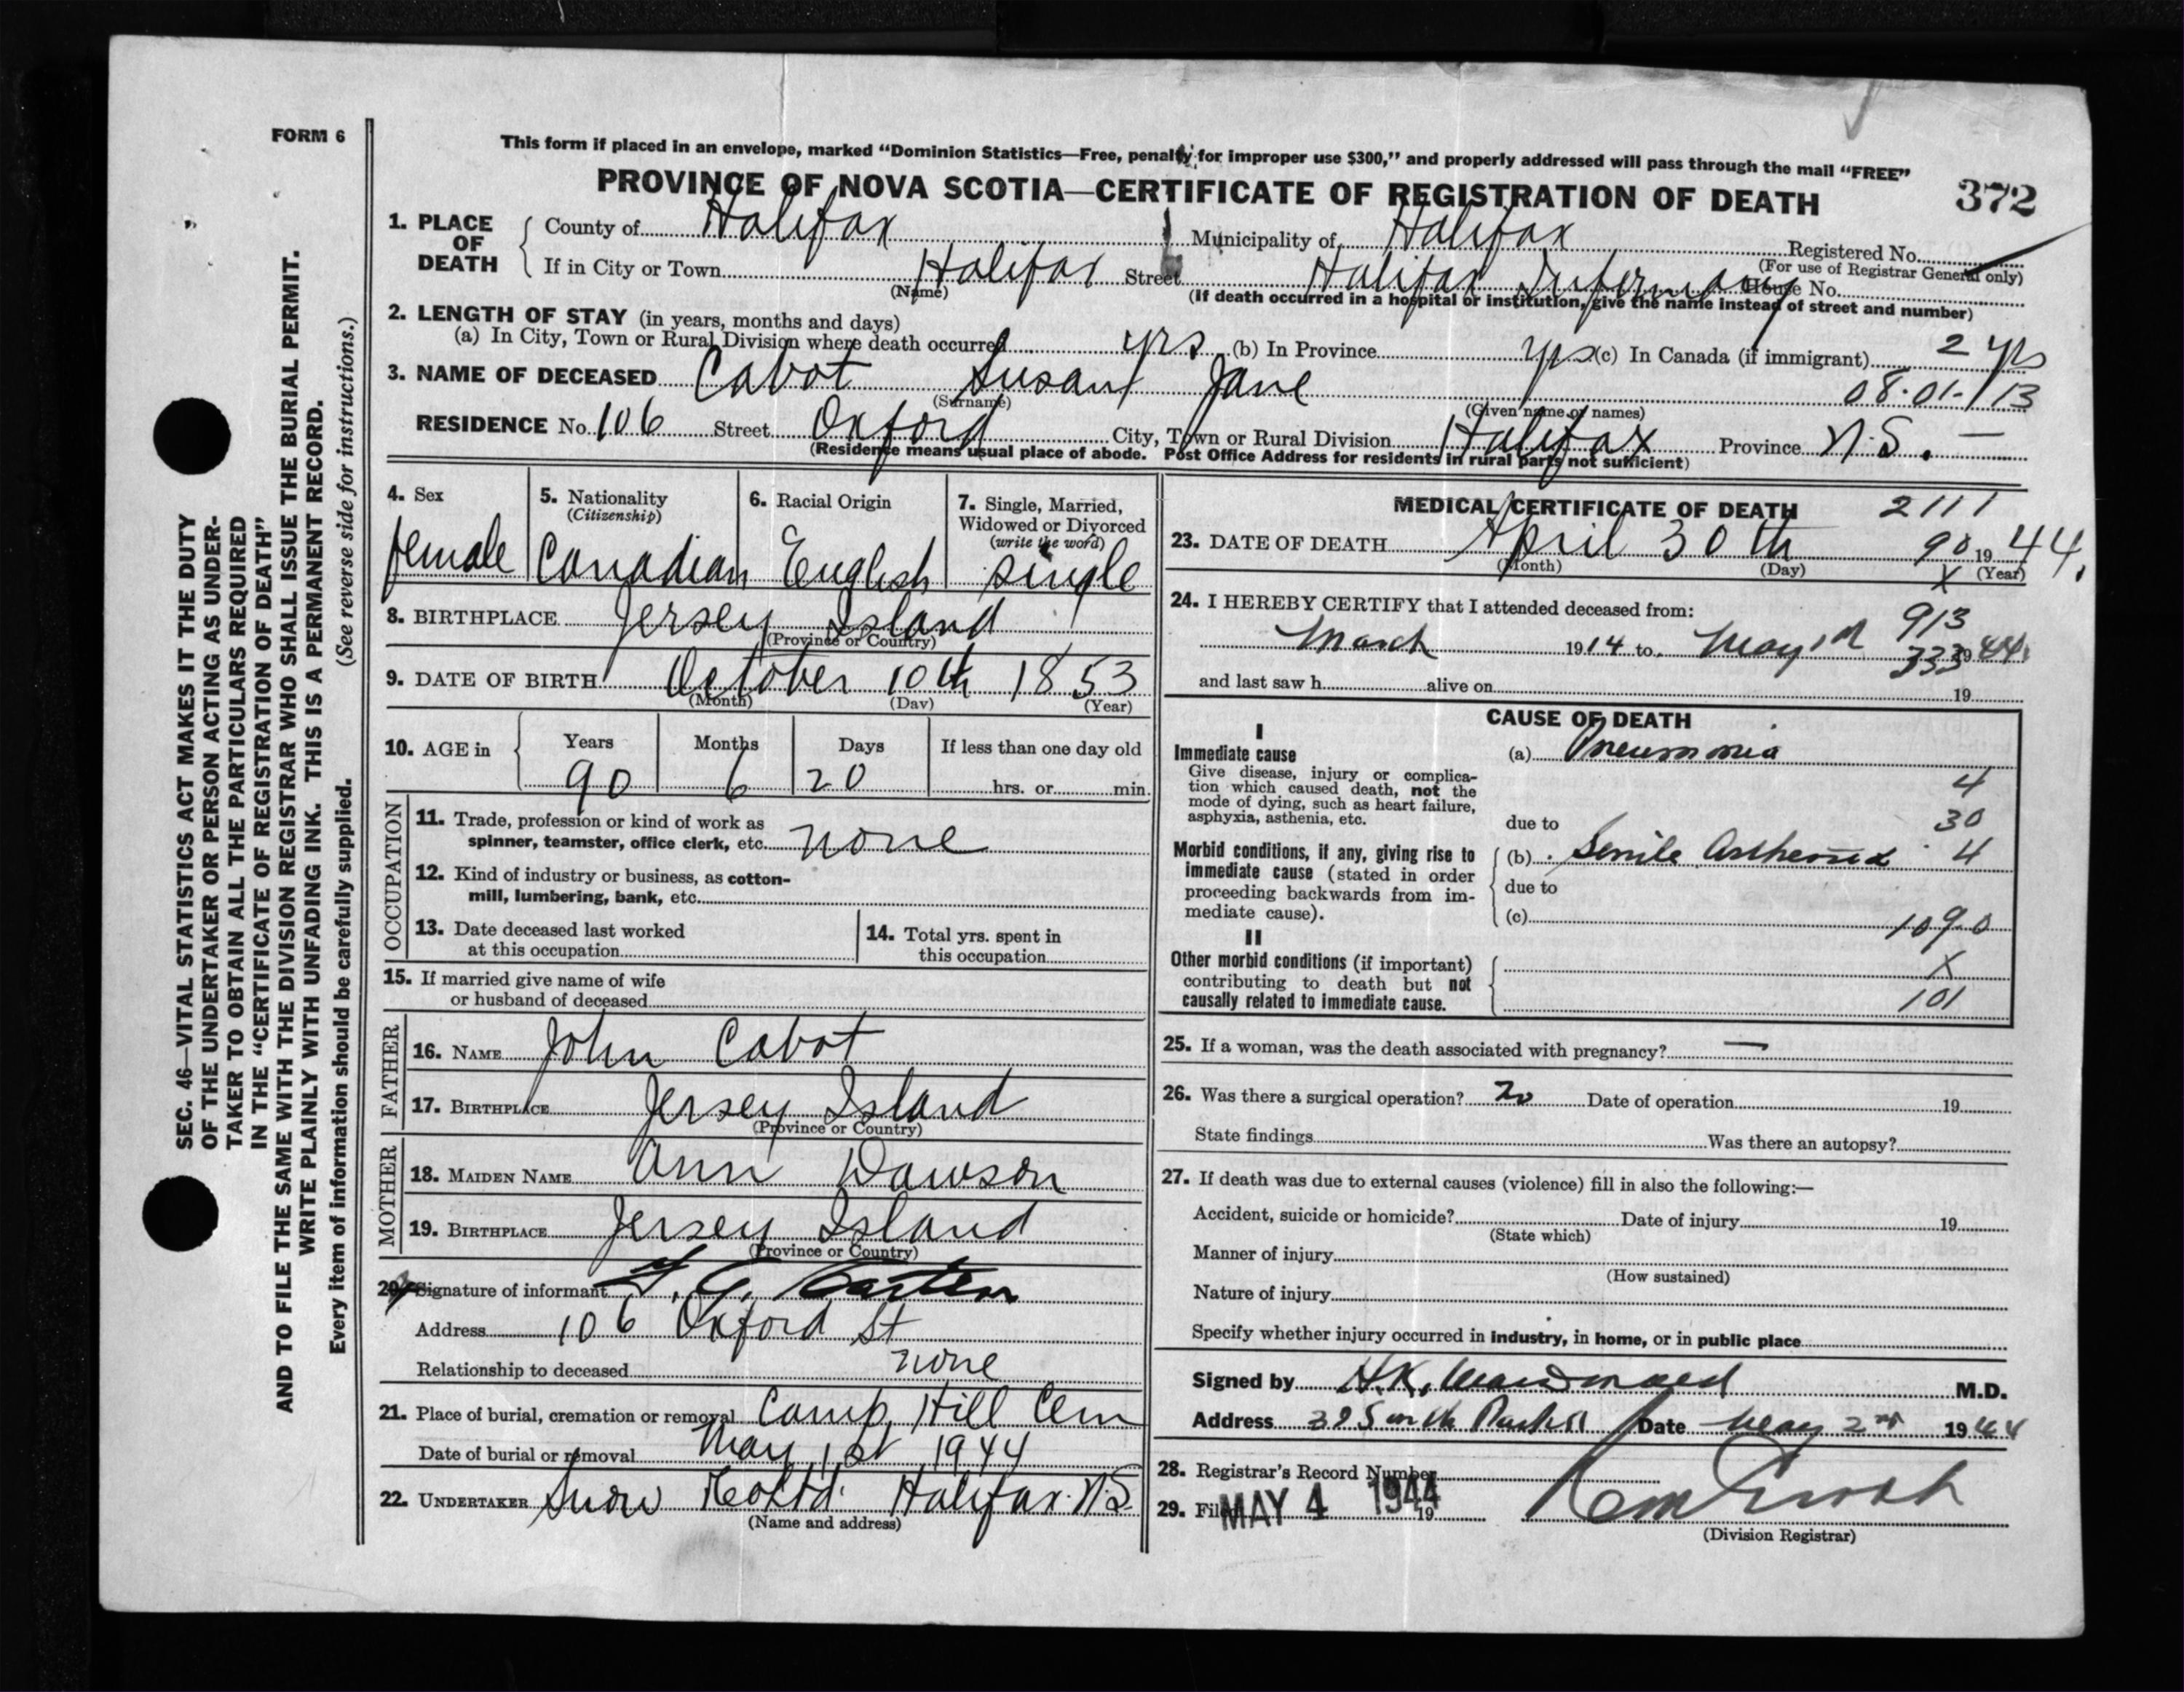 FORM 6
This form if placed in an envelope, marked “Dominion Statistics—Free, penalty for improper use $300,” and properly addressed will pass through the mail “FREE”
PROVINCE OF NOVA SCOTIA—CERTIFICATE OF REGISTRATION OF DEATH
372
1. PLACE OF DEATH { County of Halifax Municipality of Halifax Registered No.
(For use of Registrar General only)
If in City or Town Halifax Street Halifax Infirmary House No.
(Name) (If death occurred in a hospital or institution, give the name instead of street and number)
2. LENGTH OF STAY (in years, months and days)
(a) In City, Town or Rural Division where death occurred yrs (b) In Province yrs (c) In Canada (if immigrant) yrs
3. NAME OF DECEASED Cabot Susan Jane 08·01-113
(Surname) (Given name or names)
RESIDENCE No. 106 Street Oxford City, Town or Rural Division Halifax Province N.S. —
(Residence means usual place of abode. Post Office Address for residents in rural parts not sufficient)
4. Sex
female
5. Nationality
(Citizenship)
Canadian
6. Racial Origin
English
7. Single, Married,
Widowed or Divorced
(write the word)
single
8. BIRTHPLACE Jersey Island
(Province or Country)
9. DATE OF BIRTH October 10th 1853
(Month) (Day) (Year)
10. AGE in { Years Months Days If less than one day old
90 6 20 hrs. or min.
OCCUPATION
11. Trade, profession or kind of work as
spinner, teamster, office clerk, etc. none
12. Kind of industry or business, as cotton-
mill, lumbering, bank, etc.
13. Date deceased last worked
at this occupation
14. Total yrs. spent in
this occupation
15. If married give name of wife
or husband of deceased
FATHER
16. NAME John Cabot
17. BIRTHPLACE Jersey Island
(Province or Country)
MOTHER
18. MAIDEN NAME Ann Dawson
19. BIRTHPLACE Jersey Island
(Province or Country)
20. Signature of informant
Address 106 Oxford St
Relationship to deceased none
21. Place of burial, cremation or removal Camp Hill Cem
Date of burial or removal May 1st 1944
22. UNDERTAKER Snow & Co Ltd. Halifax N.S
(Name and address)
MEDICAL CERTIFICATE OF DEATH 2111
23. DATE OF DEATH April 30th 90 19 44.
(Month) (Day) X (Year)
24. I HEREBY CERTIFY that I attended deceased from: 913
March 1914 to May 1st 333 19 44
and last saw h alive on 19
CAUSE OF DEATH
I
Immediate cause
Give disease, injury or complica-
tion which caused death, not the
mode of dying, such as heart failure,
asphyxia, asthenia, etc.
(a) Pneumonia
4
due to 30
Morbid conditions, if any, giving rise to
immediate cause (stated in order
proceeding backwards from im-
mediate cause).
(b) Senile Asthenia 4
due to
(c) 1090
II
Other morbid conditions (if important)
contributing to death but not
causally related to immediate cause.
X
101
25. If a woman, was the death associated with pregnancy? —
26. Was there a surgical operation? No Date of operation 19
State findings Was there an autopsy?
27. If death was due to external causes (violence) fill in also the following:—
Accident, suicide or homicide? Date of injury 19
(State which)
Manner of injury
(How sustained)
Nature of injury
Specify whether injury occurred in industry, in home, or in public place
Signed by H.K. MacDonald M.D.
Address 39 South Park St Date May 2nd 1944
28. Registrar's Record Number
29. Filed MAY 4 1944 19
(Division Registrar)
SEC. 46—VITAL STATISTICS ACT MAKES IT THE DUTY
OF THE UNDERTAKER OR PERSON ACTING AS UNDER-
TAKER TO OBTAIN ALL THE PARTICULARS REQUIRED
IN THE “CERTIFICATE OF REGISTRATION OF DEATH”
AND TO FILE THE SAME WITH THE DIVISION REGISTRAR WHO SHALL ISSUE THE BURIAL PERMIT.
WRITE PLAINLY WITH UNFADING INK. THIS IS A PERMANENT RECORD.
Every item of information should be carefully supplied. (See reverse side for instructions.)